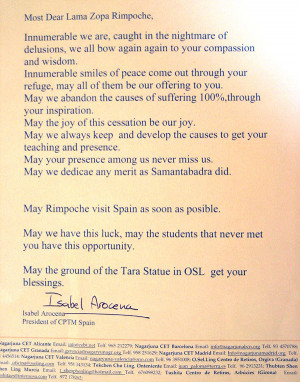 Most Dear Lama Zopa Rimpoche,
Innumerable we are, caught in the nightmare of
delusions, we all bow again again to your compassion
and wisdom.
Innumerable smiles of peace come out through your
refuge, may all of them be our offering to you.
May we abandon the causes of suffering 100%,through
your inspiration.
May the joy of this cessation be our joy.
May we always keep and develop the causes to get your
teaching and presence.
May your presence among us never miss us.
May we dedicae any merit as Samantabadra did.
May Rimpoche visit Spain as soon as posible.
May we have this luck, may the students that never met
you have this opportunity.
May the ground of the Tara Statue in OSL get your
blessings.
Isabel Arocena
Isabel Arocena
President of CPTM Spain
Nagarjuna CET Alicante Email: Nagarjuna CET Barcelona Email:
Nagarjuna CET Granada Email: Nagarjuna CET Madrid Email:
Nagarjuna CET Valencia Email: O.Sel.Ling Centro de Retiros, Orgiva (Granada)
Tekchen Chu Ling, Onteniente Email:
Ling Murcia Email: Tushita Centro de Retiros, Arbúcies (Girona) Email: